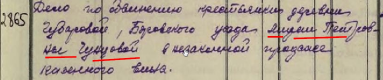 2865 Дело по обвинению крестьянки деревни
Чубаровой, Боровского уезда Марии Петров-
ной Чуковой в незаконной продаже
казенного вина.